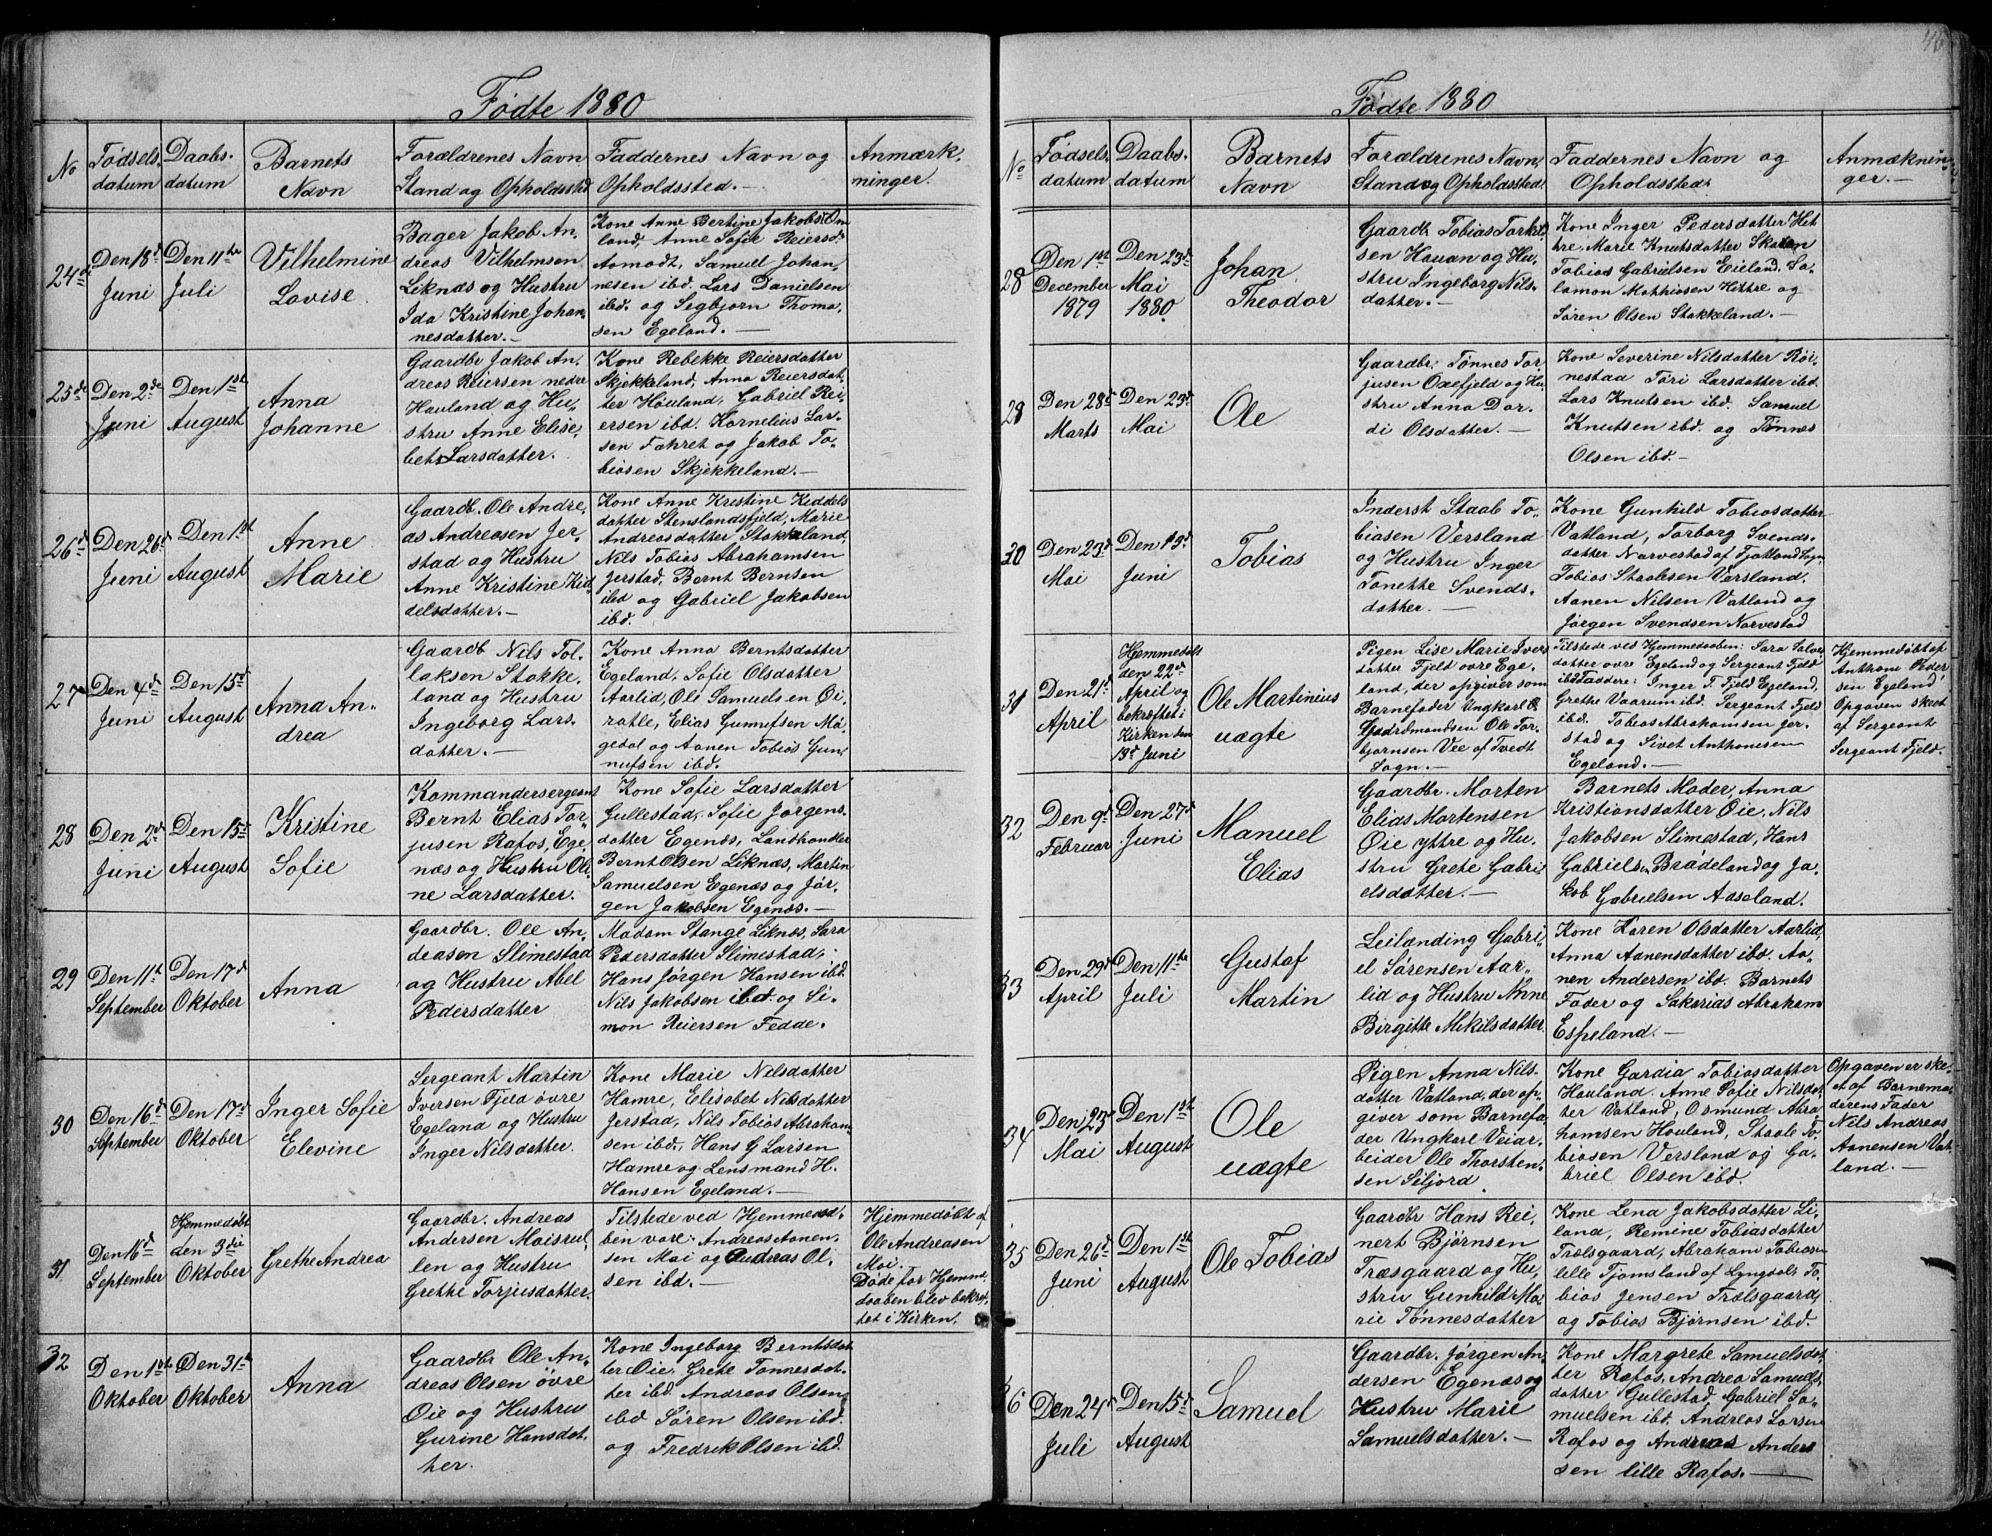 Fødte 1880
No
Fødsels-
datum
Daabs-
datum
Barnets
Navn
Forældrenes Navn
Stand og Opholdssted
Faddernes Navn og
Opholdssted.-
Anmærk-
ninger.
24de
Den 18d
Juni
Den 11te
Juli
Vilhelmine
Lovise.
Bager Jakob An-
dreas Vilhelmsen
Liknæs og Hustru
Ida Kristine Johan-
nesdatter.-
Kone Anne Bertine Jakobsd. Om
land, Anne Sofie Reiersd.
Aamodt, Samuel Johan-
nesen ibd. Lars Danielsen
ibd. og Segbjørn Thoma-
sen Egeland.-
25de
Den 2de
Juni
Den 1ste
August
Anna
Johanne
Gaardbr Jakob An-
dreas Reiersen nedre
Hauland og Hu-
stru Anne Elise-
bet Larsdatter.
Kone Rebekke Reiersdatter
Skjekkeland, Anna Reiersdat-
ter Houland, Gabriel Rei-
ersen ibd. Kornelius Lar-
sen Fahret og Jakob To-
biasen Skjekkeland.-
26d
Den 26d
Juni
Den 1st
August
Anne
Marie
Gaardb. Ole Andre-
as Andreasen Jer-
stad og Hustru
Anne Kristine Kid-
delsdatter.-
Kone Anne Kristine Kiddels
datter Stenslandsfjeld, Marie
Andreasdatter Stokkeland,
Nils Tobias Abrahamsen
Jerstad, Bernt Bernsen
ibd og Gabriel Jakobsen
ibd.
27d
Den 4de
Juni
Den 15d
August
Anna An-
drea
Gaardb Nils Tol-
laksen Stokke-
land og Hustru
Ingeborg Lars-
datter.-
Kone Anna Berntsdatter
Egeland, Sofie Olsdatter
Aarlid, Ole Samuelsen Øi-
ratle, Elias Gunnufsen Mø-
gedal og Aanen Tobias Gun-
nufsen ibd.
28
Den 2d
Juni
Den 15d
August
Kristine
Sofie
Kommandersergeant
Bernt Elias Tor-
jusen Rafos, Ege-
næs og Hustru Oli-
ne Larsdatter.
Kone Sofie Larsdatter
Gullestad, Sofie Jørgens-
datter Egenæs, Landhandler
Bernt Olsen Liknæs, Martin
Samuelsen Egenæs og Jør-
gen Jakobsen Egenæs.-
29
Den 11t
September
Den 17d
Oktober
Anna
Gaardbr. Ole An-
deasen Slimestad
og Hustru Abel
Pedersdatter
Madam Stange Liknæs, Sara
Pedersdatter Slimestad,
Hans Jørgen Hansen ibd.
Nils Jakobsen ibd. og Si-
mon Reiersen Fedde.
30
Den 16d
September
Den 17d
Oktober
Inger Sofie
Elevine
Sergeant Martin
Iversen Fjeld øvre
Egeland og Hustru
Inger Nilsdatter.
Kone Marie Nilsdatter
Hamre, Elisabet Nilsdatter
Jerstad, Nils Tobias Abraham-
sen ibd., Hans G Larsen
Hamre og Lensmand H.
Hansen Egeland.-
31
Den 16d
September
Hjemmedøbt
den 3die
Oktober
Grethe Andrea
Gaardbr. Andreas
Andersen Moisrul-
len og Hustru
Grethe Torjusdatter.
Tilstede ved Hjemmeda-
ben vare: Andreas Aanen-
sen Moi og Andreas Ol-
sen ibd.-
Hjemmedøbt af
Ole Andreasen
Moi.
Døde før Hjemme-
daaben blev bekræf-
tet i Kirken.
32
Den 1ste
Oktober
Den 31te
Oktober
Anna
Gaardbr Ole An-
dreas Olsen øvre
Øie og Hustru
Gurine Hansdat-
ter.
Kone Ingeborg Berntsdat-
ter Øie, Grete Tønnesdat-
ter ibd. Andreas Olsen
ibd Søren Olsen ibd.
og Fredrik Olsen ibd.
Fødte 1880
No
Fødsels-
datum
Daabs-
datum
Barnets
Navn
Forældrenes Navn,
Stand og Opholdssted
Faddernes Navn og
Opholdssted
Anmæknin-
ger.-
28
Den 1ste
December
1879
Den 23d
Mai
1880
Johan
Theodor
Gaardb Tobias Torkel-
sen Hauan og Hu-
stru Ingeborg Nils-
datter.-
Kone Inger Pedersdatter Het-
tre, Marie Knutsdatter Skaten
Tobias Gabrielsen Eieland, Sa-
lamon Mathiasen Hittre og
Søren Olsen Stakkeland.-
28
Den 28d
Marts
Den 23d
Mai
Ole
Gaardbr. Tønnes Tor-
jusen Oxefjeld og Hu-
stru Anna Dor-
di Olsdatter.-
Kone Severine Nilsdatter Røi-
nestad Tøri Larsdatter ibd.
Lars Knutsen ibd. Samuel
Knutsen ibd. og Tønnes
Olsen ibd.-
30
Den 23d
Mai
Den 13d
Juni
Tobias
Inderst Staale To-
biasen Versland
og Hustru Inger
Tonette Svends-
datter.-
Kone Gunhild Tobiasdatter
Vatland, Torborg Svends-
datter Narvestad af Fjotland Sogn
Tobias Staalesen Versland,
Aanen Nilsen Vatland og
Jørgen Svendsen Narvestad
31
Den 21d
April
Hjemmedøbt
den 22d
April og
bekræftet i
Kirken den
13d Juni
Ole Martinius
uægte
Pigen Lise Marie Ivers-
datter Fjeld øvre Ege-
land, der opgiver som
Barnefader Ungkarl &
Gaardmandsøn Ole Tor-
bjørnsen Vee af Tvedt
Sogn.-
Tilstede ved Hjemmedaaben: Sara Salves
datter øvre Egeland og Sergeant Fjeld
ibd. Faddere: Inger T. Fjeld Egeland,
Grethe Vaarum ibd. Sergeant Fjeld
ibd. Tobias Abrahamsen Jer-
stad og Sivet Anthonisen
Egeland.-
Hjemmedøbt af
Anthoni Peder-
sen Egeland,
Opgaven skeet
af Sergeant
Sergeant Fjeld.
32
Den 9d
Februar
Den 27d
Juni
Manuel
Elias
Gaardbr. Morten
Elias Mortensen
Øie yttre og Hu-
stru Grete Gabri-
elsdatter.-
Barnets Moder, Anna
Kristiansdatter Øie, Nils
Jakobsen Slimestad, Hans
Gabrielsen Brådeland og Ja-
kob Gabrielsen Aaseland.
33
Den 29d
April
Den 11te
Juli
Gustaf
Martin
Leilanding Gabri-
el Sørensen Aar-
lid og Hustru Anne
Birgitte Mikilsdatter.
Kone Karen Olsdatter Aarlid,
Anna Aanensdatter ibd. Aa-
nen Andersen ibd. Barnets
Fader og Sakarias Abraham
Espeland.-
34
Den 23d
Mai
Den 1st
August
Ole
uægte
Pigen Anna Nils-
datter Vatland, der op-
giver som Barnefa-
der Ungkarl Veiar-
beider Ole Thorsten-
sen Siljord
Kone Gardia Tobiasdatter
Houland. Anne Sofie Nilsdat-
ter Vatland, Osmund Abra-
hamsen Houland, Staale To-
biasen Versland og Ga-
briel Olsen ibd.
Opgaven er ske-
et af Barnemo-
derens Fader
Nils Andreas
Aanensen Vat-
land.-
35
Den 26d
Juni
Den 1st
August
Ole Tobias
Gaardbr Hans Rei-
nert Bjørnsen
Træsgaard og Hu-
stru Gunhild Ma-
rie Tønnesdatter
Kone Lena Jakobsdatter Li-
land, Remine Tobiasdatter
Trælsgaard, Abraham Tobiasen
lille Tjomsland af Lyngdal, To-
bias Jensen Trælsgaard,
og Tobias Bjørnsen ibd.
36
Den 24d
Juli
Den 15d
August
Samuel
Gaardbr. Jørgen An-
dersen Egenæs og
Hustru Marie
Samuelsdatter.-
Kone Margrete Samuelsdat-
ter Rafos, Andrea Samuels-
datter Gullestad, Gabriel Sa-
muelsen ibd. Andreas Larsen
Rafos og Andreas Anders
sen lille Rafos.-